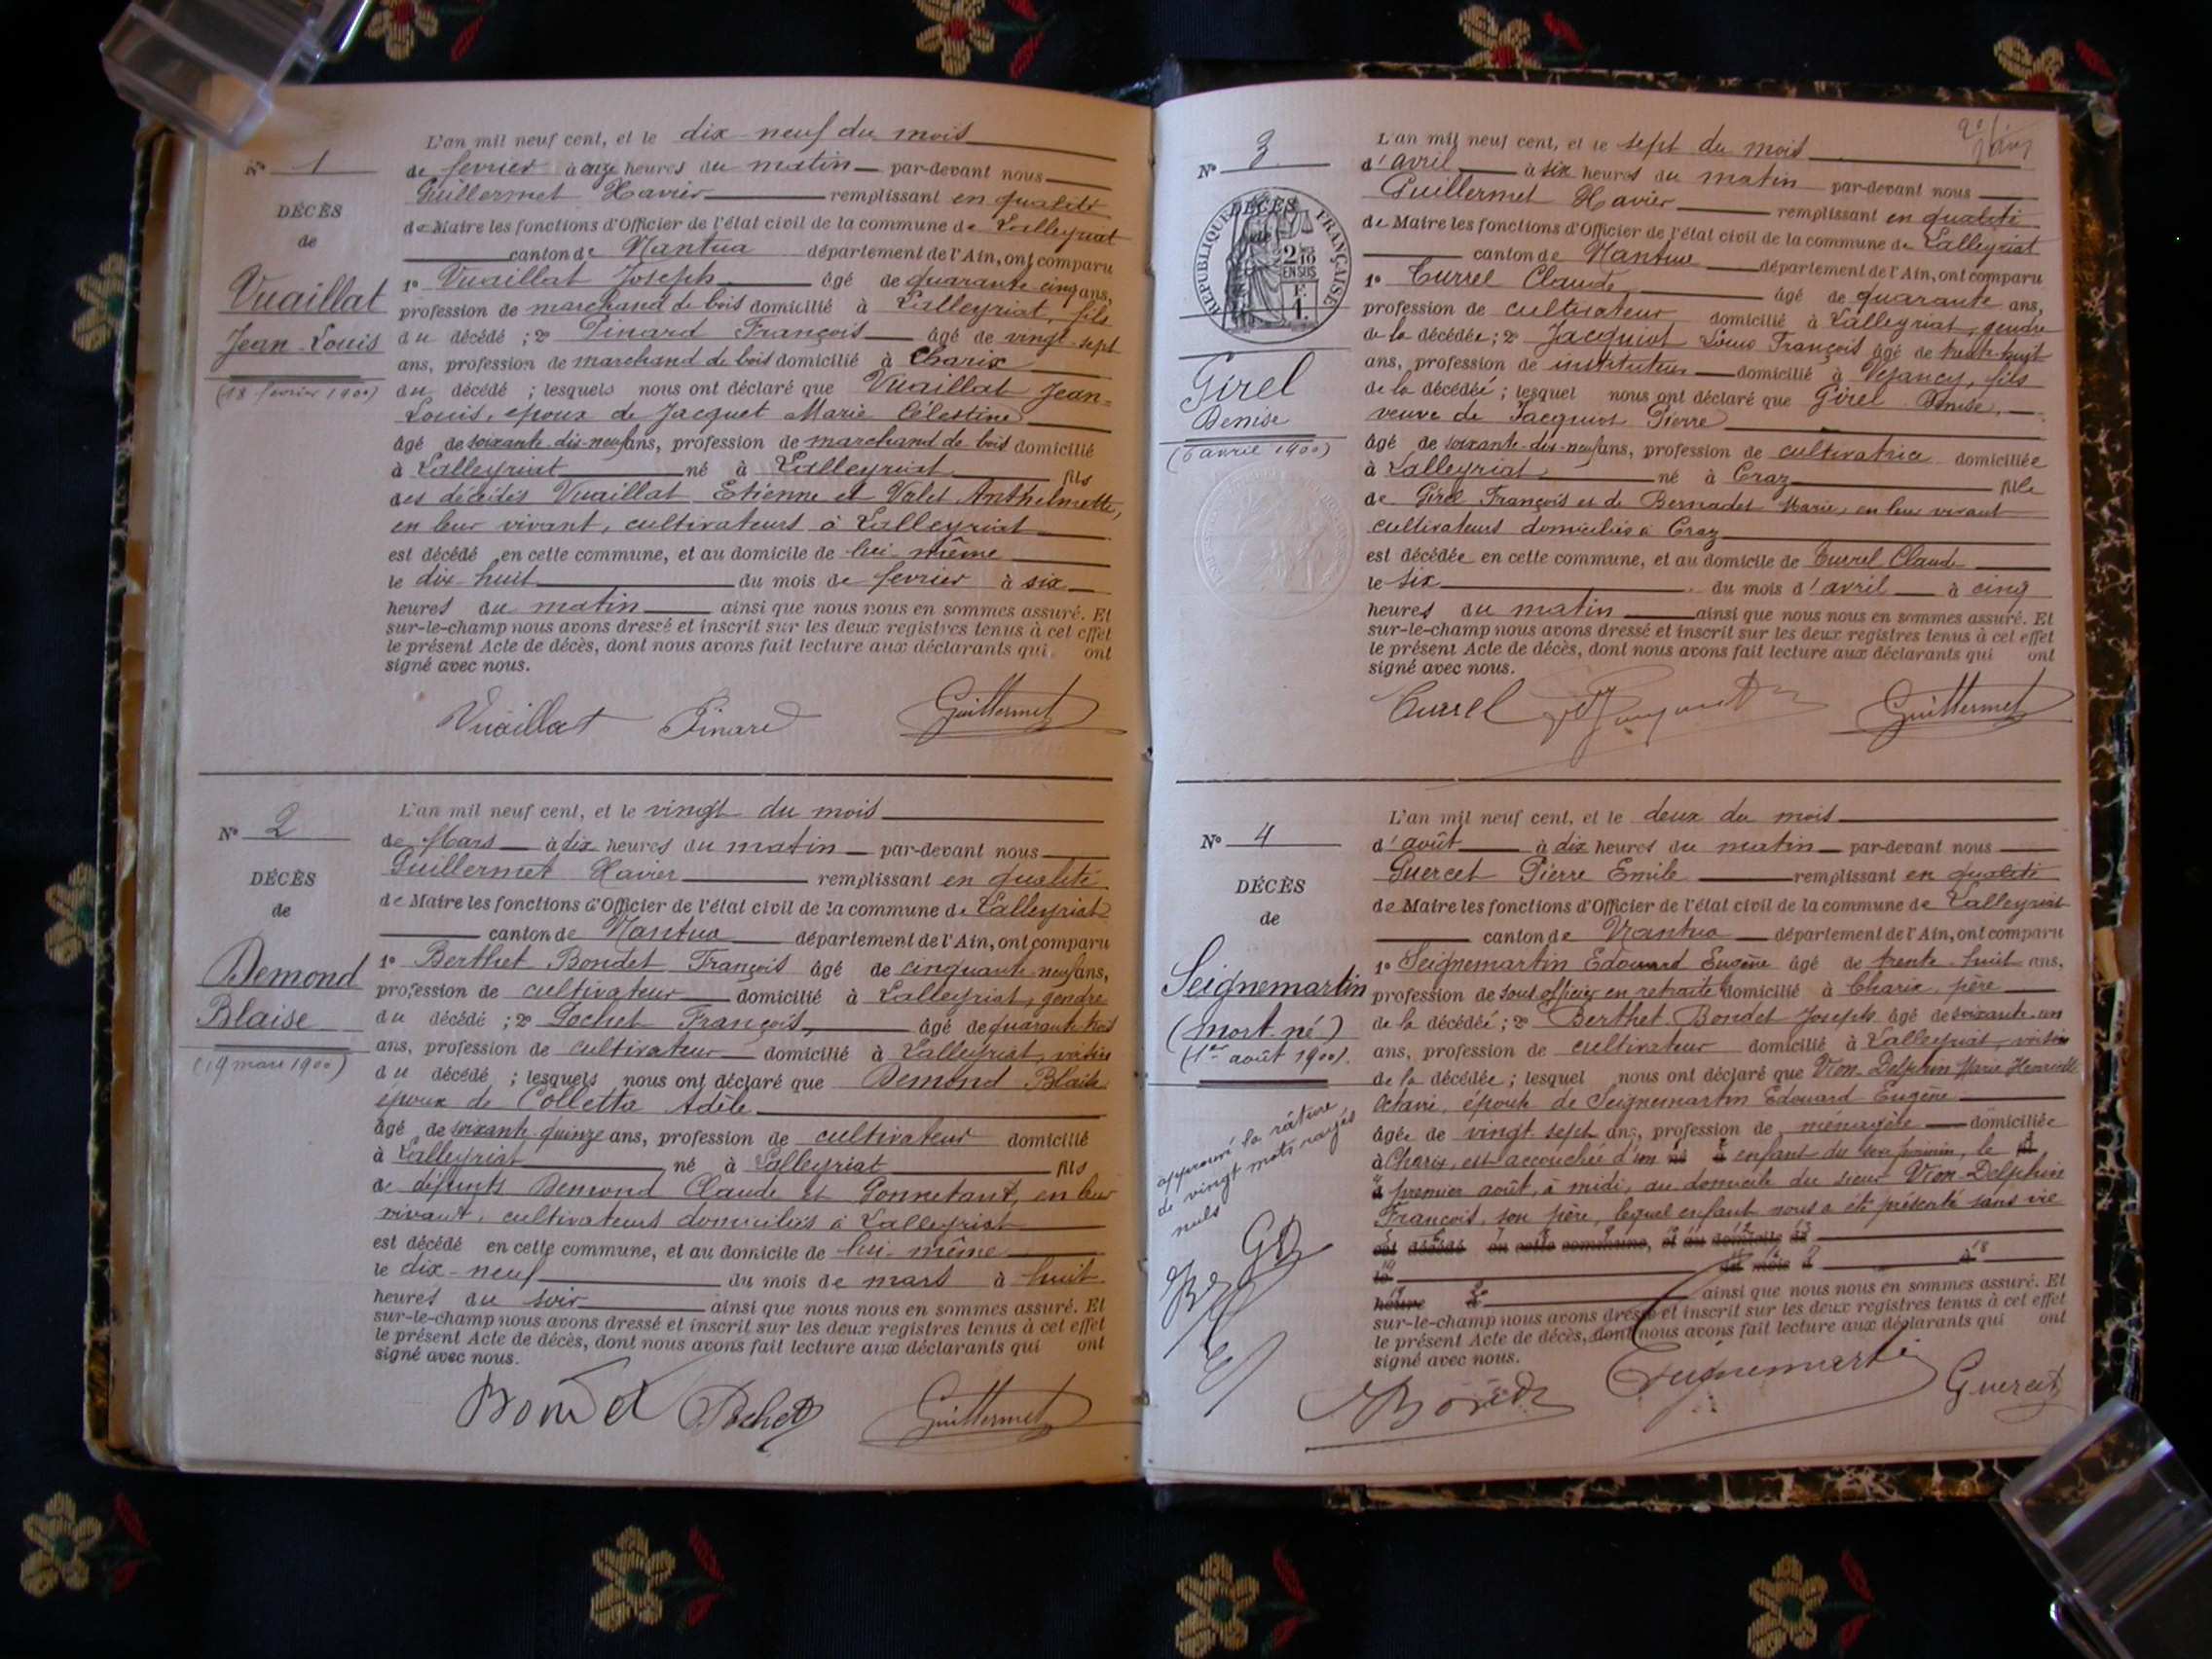 N° 1
DÉCÈS
de
Vuaillat
Jean-Louis
(18 fevrier 1900)
L'an mil neuf cent, et le dix-neuf du mois
de fevrier à onze heures du matin par-devant nous
Guillermet Xavier remplissant en qualité
de Maire les fonctions d'Officier de l'état civil de la commune de Lalleyriat
canton de Nantua département de l'Ain, ont comparu
1° Vuaillat Joseph âgé de quarante cinq ans,
profession de marchand de bois domicilié à Lalleyriat, fils
du décédé ; 2° Pinard François âgé de vingt-sept
ans, profession de marchand de bois domicilié à Charix
du décédé ; lesquels nous ont déclaré que Vuaillat Jean-
Louis, epoux de Jacquet Marie Célestine
âgé de soixante-dix-neuf ans, profession de marchand de bois domicilié
à Lalleyriat né à Lalleyriat fils
des décédés Vuaillat Etienne et Valet Anthelmette,
en leur vivant, cultivateurs à Lalleyriat
est décédé en cette commune, et au domicile de lui-même
le dix-huit du mois de fevrier à six
heures du matin ainsi que nous nous en sommes assuré. Et
sur-le-champ nous avons dressé et inscrit sur les deux registres tenus à cet effet
le présent Acte de décès, dont nous avons fait lecture aux déclarants qui ont
signé avec nous.
Vuaillat Pinard Guillermet
N° 2
DÉCÈS
de
Demond
Blaise
(19 mars 1900)
L'an mil neuf cent, et le vingt du mois
de Mars à dix heures du matin par-devant nous
Guillermet Xavier remplissant en qualité
de Maire les fonctions d'Officier de l'état civil de la commune de Lalleyriat
canton de Nantua département de l'Ain, ont comparu
1° Berthet Bondet François âgé de cinquante neuf ans,
profession de cultivateur domicilié à Lalleyriat, gendre
du décédé ; 2° Lochet François, âgé de quarante trois
ans, profession de cultivateur domicilié à Lalleyriat, voisin
du décédé ; lesquels nous ont déclaré que Demond Blaise
époux de Colletta Adèle
âgé de soixante quinze ans, profession de cultivateur domicilié
à Lalleyriat né à Lalleyriat fils
de défunts Demond Claude et Gonnetant, en leur
vivant, cultivateurs domiciliés à Lalleyriat
est décédé en cette commune, et au domicile de lui-même
le dix-neuf du mois de mars à huit
heures du soir ainsi que nous nous en sommes assuré. Et
sur-le-champ nous avons dressé et inscrit sur les deux registres tenus à cet effet
le présent Acte de décès, dont nous avons fait lecture aux déclarants qui ont
signé avec nous.
Guillermet
N° 3
RÉPUBLIQUE FRANÇAISE
DÉCÈS
de
2/10
EN SUS
F.
1.
Girel
Denise
(6 avril 1900)
L'an mil neuf cent, et le sept du mois
d'avril à six heures du matin par-devant nous
Guillermet Xavier remplissant en qualité
de Maire les fonctions d'Officier de l'état civil de la commune de Lalleyriat
canton de Nantua département de l'Ain, ont comparu
1° Turrel Claude âgé de quarante ans,
profession de cultivateur domicilié à Lalleyriat, gendre
de la décédée ; 2° Jacquiot Louis François âgé de trente-huit
ans, profession de instituteur domicilié à Vesancy, fils
de la décédée ; lesquel nous ont déclaré que Girel Denise,
veuve de Jacquiot Pierre
âgé de soixante-dix-neuf ans, profession de cultivatrice domiciliée
à Lalleyriat né à Craz fille
de Girel François et de Bernadet Marie, en leur vivant
cultivateurs domiciliés à Craz
est décédée en cette commune, et au domicile de Turrel Claude
le six du mois d'avril à cinq
heures du matin ainsi que nous nous en sommes assuré. Et
sur-le-champ nous avons dressé et inscrit sur les deux registres tenus à cet effet
le présent Acte de décès, dont nous avons fait lecture aux déclarants qui ont
signé avec nous.
Turrel Guillermet
N° 4
DÉCÈS
de
Seignemartin
(mort-né)
(1er août 1900).
approuvé la râture
de vingt mots rayés
nuls
L'an mil neuf cent, et le deux du mois
d'août à dix heures du matin par-devant nous
Guercet Pierre Emile remplissant en qualité
de Maire les fonctions d'Officier de l'état civil de la commune de Lalleyriat
canton de Nantua département de l'Ain, ont comparu
1° Seignemartin Edouard Eugène âgé de trente-huit ans,
profession de sous officier en retraite domicilié à Charix, père
de la décédée ; 2° Berthet Bondet Joseph âgé de soixante-un
ans, profession de cultivateur domicilié à Lalleyriat, voisin
de la décédée ; lesquel nous ont déclaré que Vion-Delphin Marie Henriette
Octavie, épouse de Seignemartin Edouard Eugène
âgée de vingt-sept ans, profession de ménagère domiciliée
à Charix, est accouchée d'un né enfant du sexe féminin, le
premier août, à midi, au domicile du sieur Vion-Delphin
François, son père, lequel enfant nous a été présenté sans vie
est décédé en cette commune, et au domicile de
le du mois d à
heure d ainsi que nous nous en sommes assuré. Et
sur-le-champ nous avons dressé et inscrit sur les deux registres tenus à cet effet
le présent Acte de décès, dont nous avons fait lecture aux déclarants qui ont
signé avec nous.
Seignemartin Guercet